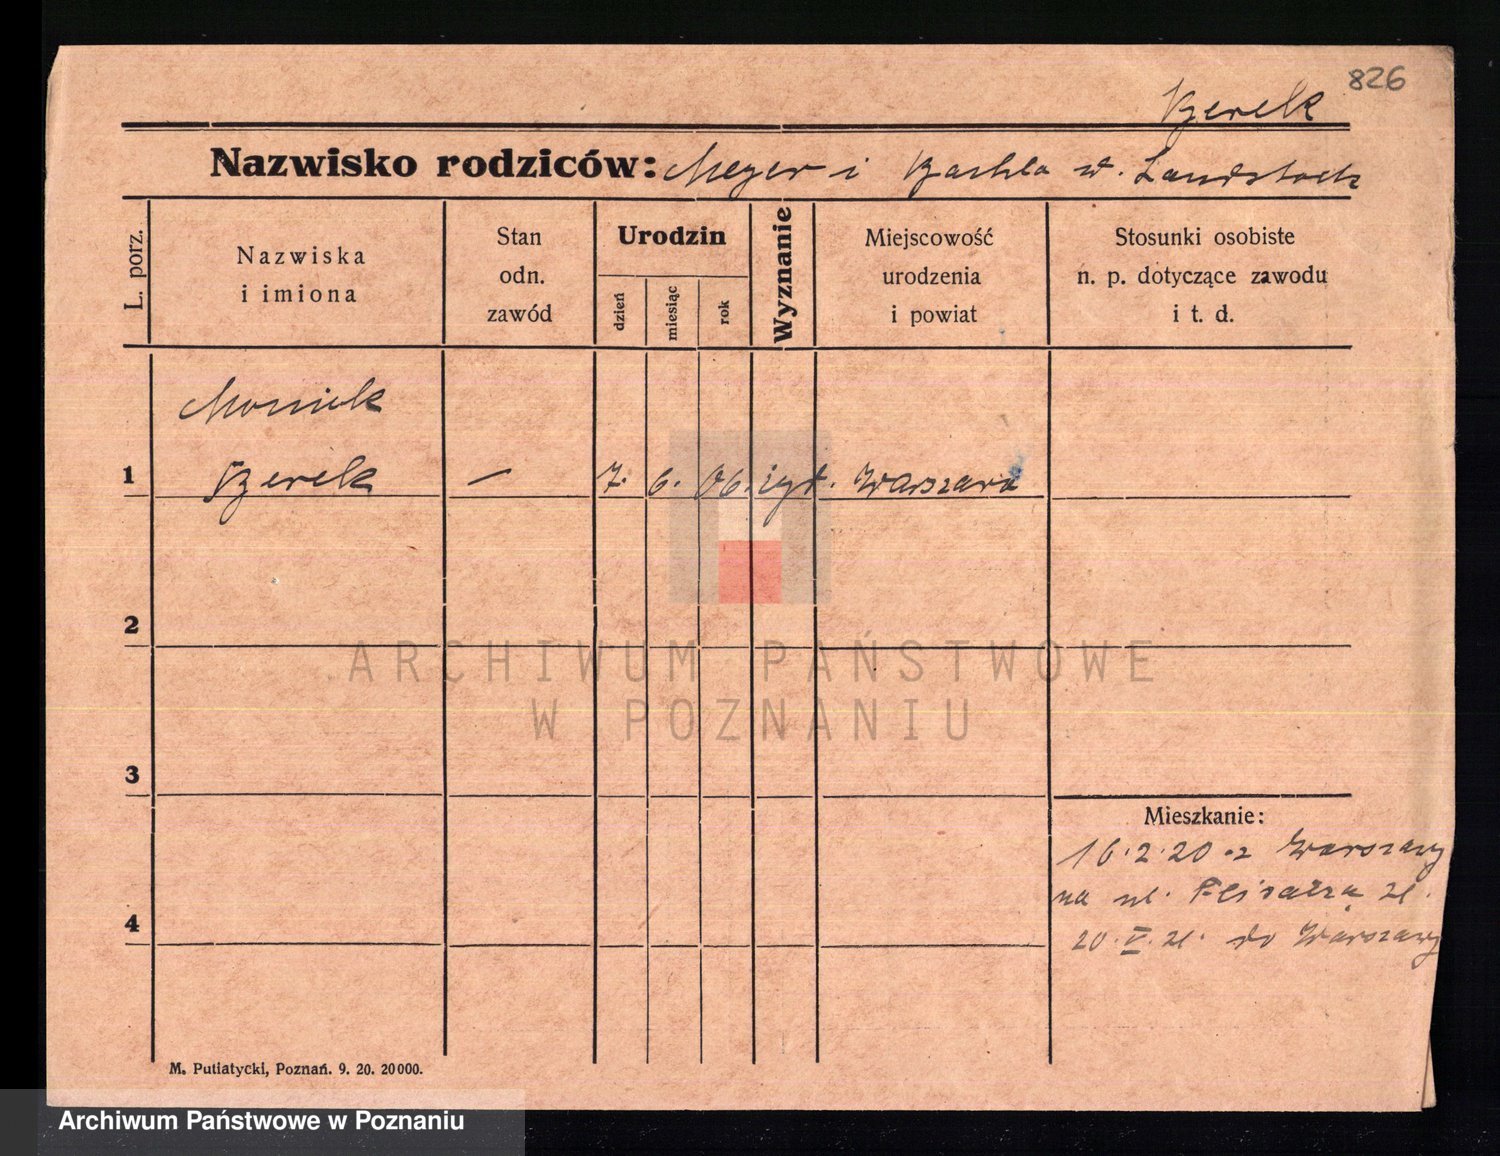 826
Berek
Nazwisko rodziców: Meyer i Bachla w. Landstock
L. porz.
Nazwiska
i imiona
Stan
odn.
zawód
Urodzin
dzień
miesiąc
rok
Wyznanie
Miejscowość
urodzenia
i powiat
Stosunki osobiste
n. p. dotyczące zawodu
i t. d.
Moniek
1 Berek — 7. 6. 06. iyd. Warszawa
2
3
Mieszkanie:
16.2.20 z Warszawy
na ul. 21.
4
20.V.21. do Warszawy
M. Putiatycki, Poznań. 9. 20. 20000.
ARCHIWUM PAŃSTWOWE
W POZNANIU
Archiwum Państwowe w Poznaniu